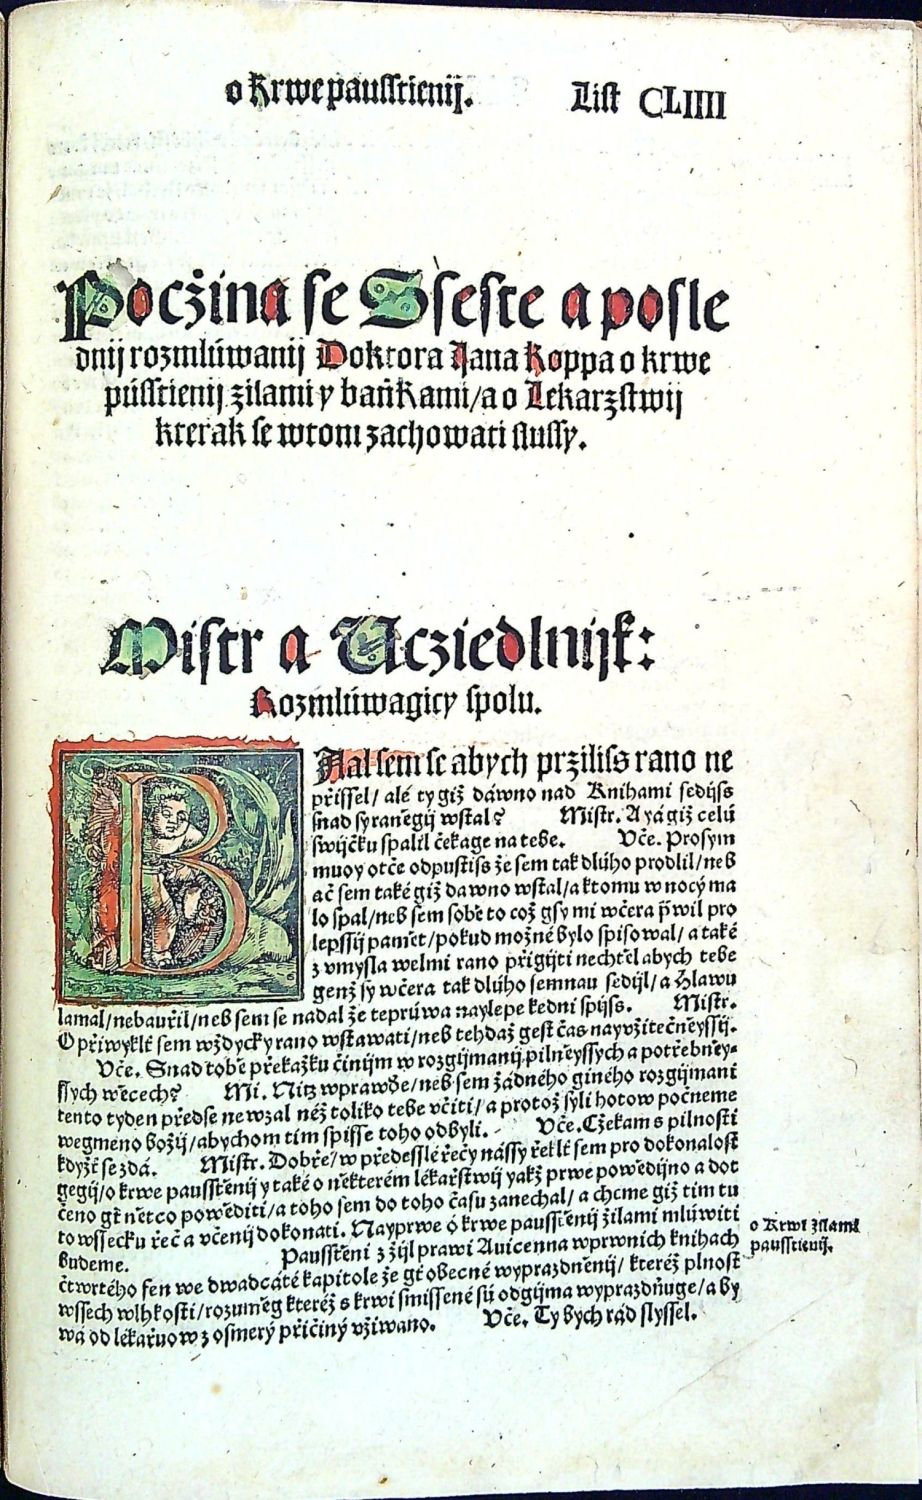 o Krwe pausstienij. List CLIIII
Pocžina se Sseste a posle
dnij rozmlúwanij Doktora Jana Koppa o krwe
pússtienij žilami y bańkami/a o Lekarzstwij
kterak se wtom zachowati slussy.
Mistr a Ucziedlnijk:
Rozmlúwagicy spolu.
BAal sem se abych przilišs rano ne
přissel/ alé ty giž dáwno nad Knihami sedijšs
snad sy raněgij wstal? Mistr. A yá giž celú
swijčku spalil čekage na tebe. Vče. Prosym
muoy otče odpustišs že sem tak dlúho prodlil/neb
ač sem také giž dawno wstal/a ktomu w nocý ma
lo spal/neb sem sobě to což gsy mi wčera p̄wil pro
lepssij pamět/pokud možné bylo spisowal/a také
z vmysla welmi rano přigijti nechtěl abych tebe
genž sy wčera tak dlúho semnau sedijl/a Hlawu
lamal/nebauřil/neb sem se nadal že teprúwa naylepe kedni spijšs. Mistr.
O přiwyklť sem wždycky rano wstawati/neb tehdaž gest čas nayvžitečněyssij.
Vče. Snad tobě překažku činijm w rozgijmanij pilněyssych a potřebněy-
ssych wěcech? Mi. Nitz wprawdě/neb sem žádného giného rozgijmani
tento tyden předse newzal něž toliko tebe včiti/a protož syli hotow počneme
wegmeno božij/abychom tim spisse toho odbyli. Vče. Cžekam s pilnosti
kdyžť se zdá. Mistr. Dobře/w předesslé řečy nássy řeklť sem pro dokonalost
gegij/o krwe pausstěnij y také o některém lékařstwij yakž prwe powědijno a dot
čeno gť něco powěditi/a toho sem do toho času zanechal/a chcme giž tim tu
to wssecku řeč a včenij dokonati. Nayprwe ó krwe pausstěnij žilami mlúwiti
budeme. Pausstěni z žijl prawi Auicenna wprwnich knihach
čtwrtého fen we dwadcáté kapitole že gť obecné wyprazdněnij/ kteréž plnost
wssech wlhkosti/rozuměg kteréž s krwi smissené sú odgijma wyprazdňuge/a by
wá od lékařuow z osmerý přičiný vžiwano. Vče. Ty bych rád slyssel.
o Krwe žilami
pausstienij.